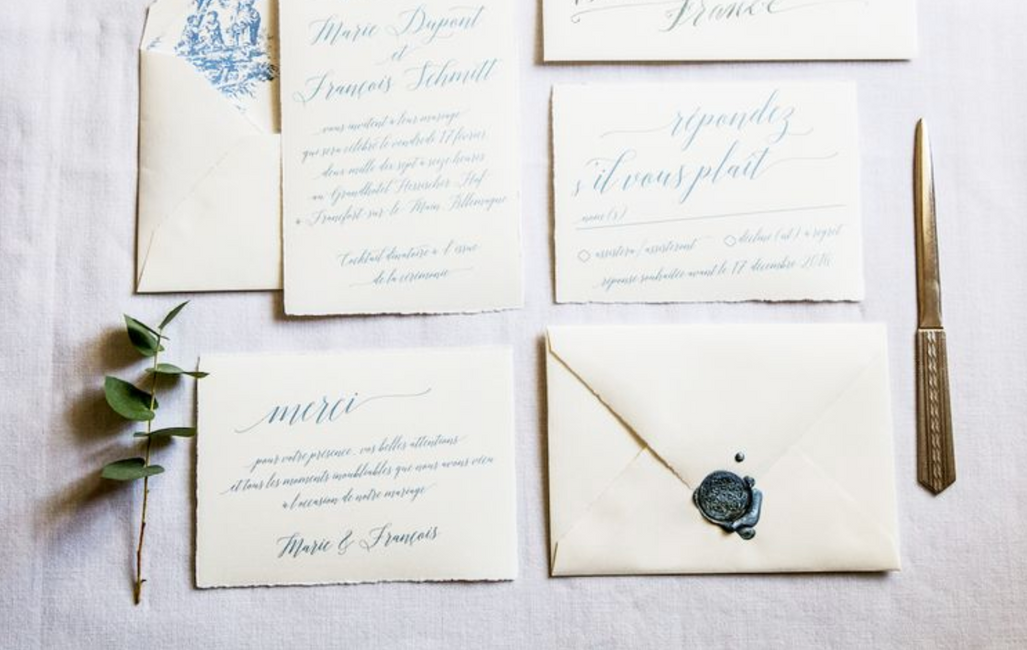 Marie Dupont
et
François Schmitt
vous invitent à leur mariage
qui sera célébré le vendredi 17 février
deux mille dix sept à seize heures
au Grandhotel Hessischer Hof
Francfort-sur-le-Main, Allemagne
Cocktail dînatoire à l'issue
de la cérémonie
France
répondez
s'il vous plaît
nom(s)
assistera/assisteront
décline(nt) à regret
réponse souhaitée avant le 17 décembre 2016
merci
pour votre présence, vos belles attentions
et tous les moments inoubliables que nous avons vécu
à l'occasion de notre mariage
Marie & François